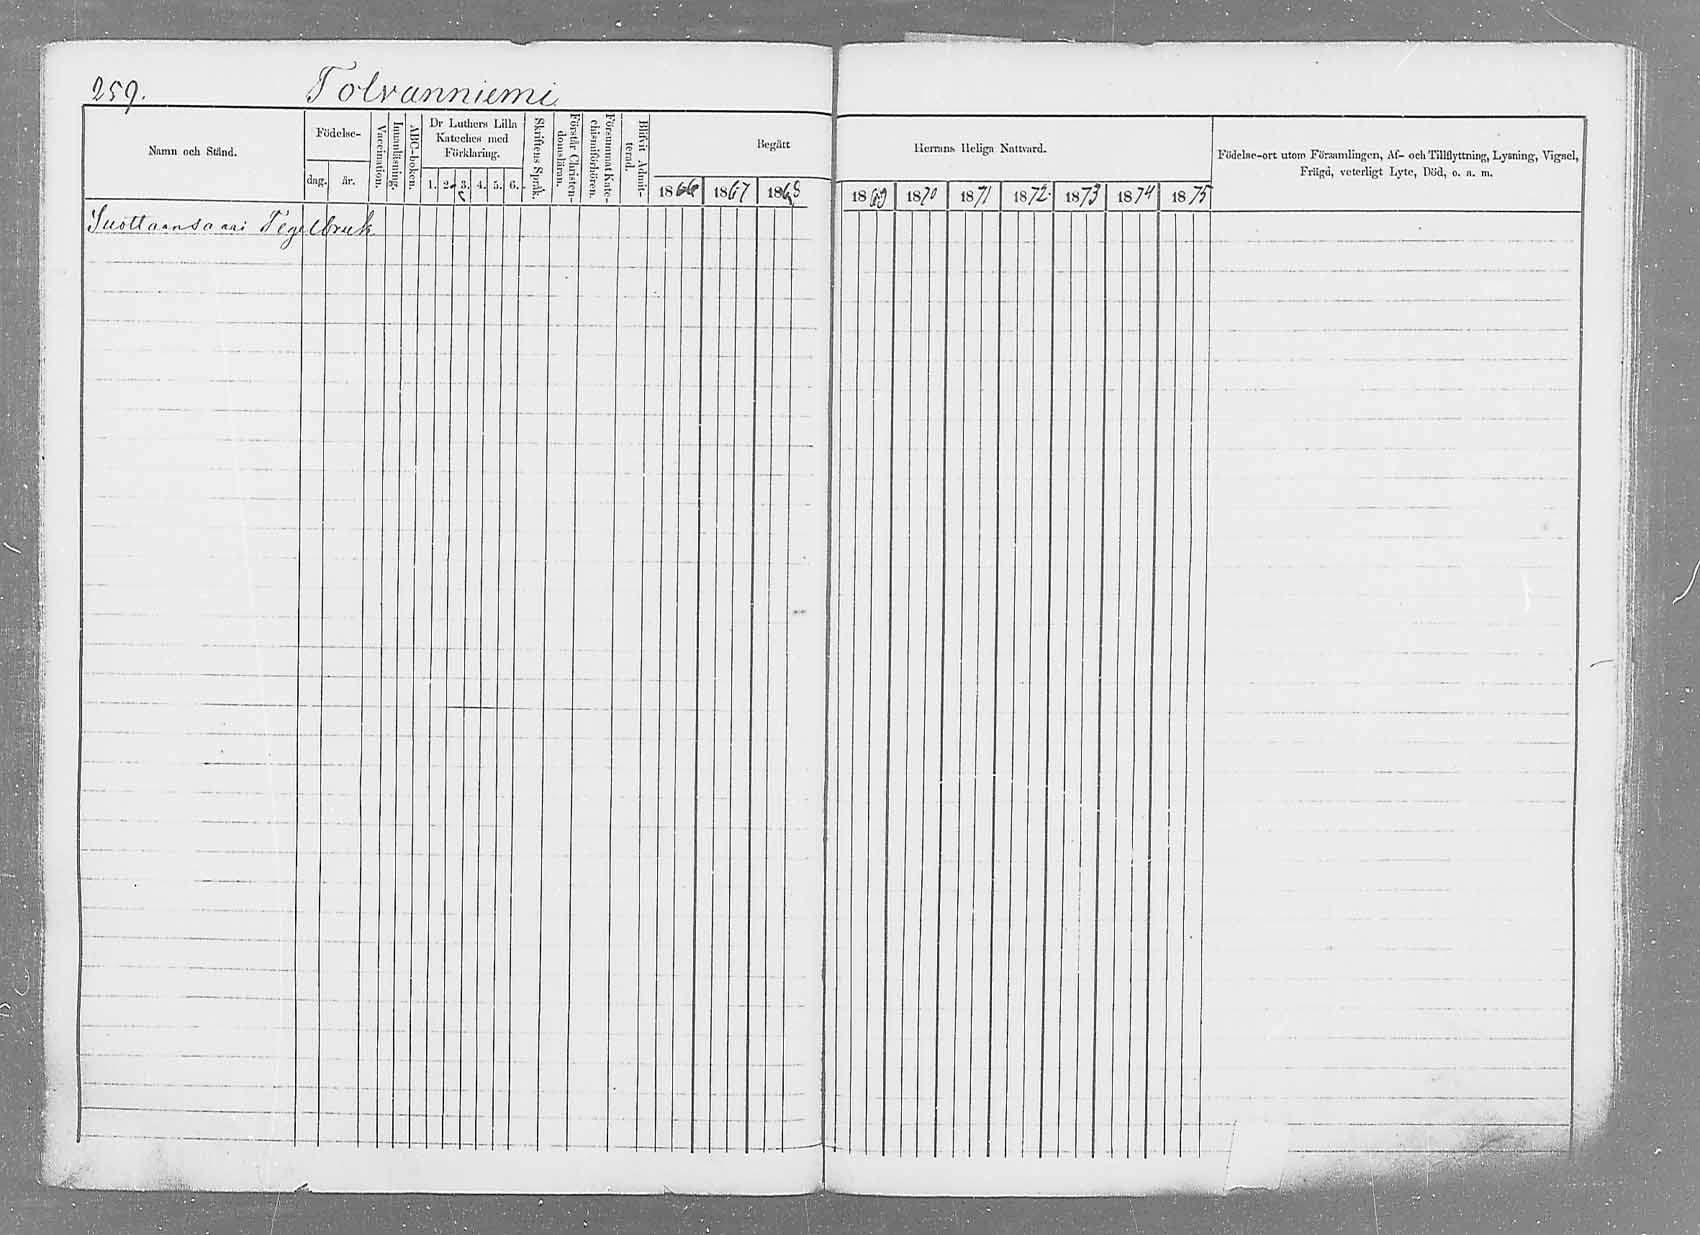 259. Tolvanniemi
Namn och Stånd.
Födelse-
dag. år.
Vaccination.
Innanläsning.
ABC-boken.
Dr Luthers Lilla
Kateches med
Förklaring.
1. 2. 3. 4. 5. 6.
Skriftens Språk.
Förstår Christen-
domsläran.
Försummat Kate-
chismiförhören.
Blifvit Admit-
terad.
Begått
1866 1867 1868
Herrans Heliga Nattvard.
1869 1870 1871 1872. 1873 1874 1875
Födelse-ort utom Församlingen, Af- och Tillflyttning, Lysning, Vigsel,
Frägd, veterligt Lyte, Död, o. s. m.
Suottaansaari Tegelbruk